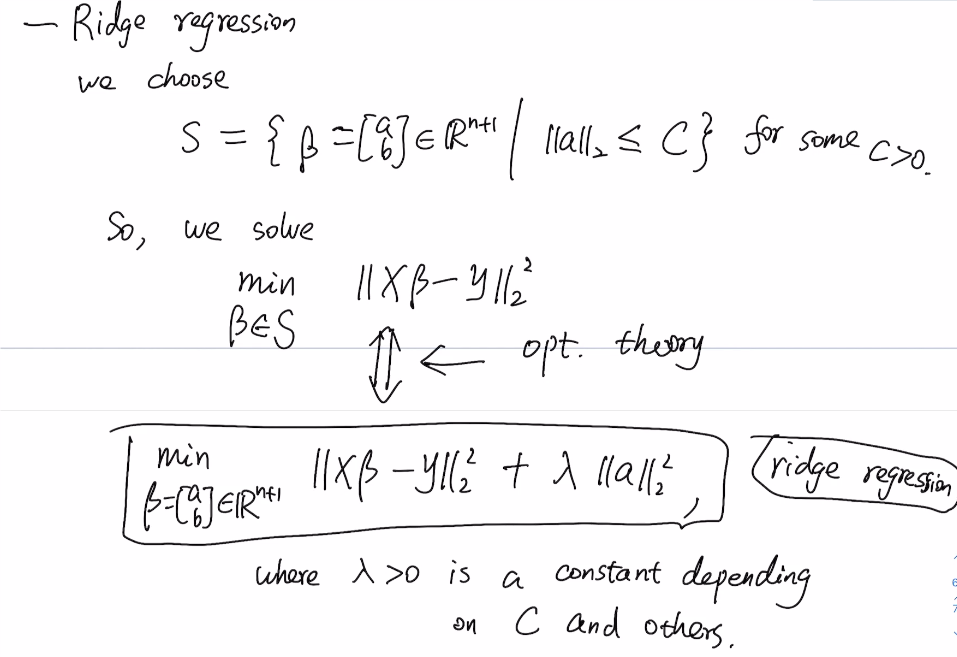 — Ridge regression
we choose
S = { β = [a b] ∈ ℝⁿ⁺¹ | ||a||₂ ≤ C } for some C>0.
So, we solve
min ||Xβ − y||₂²
β∈S
⇕ ← opt. theory
min ||Xβ − y||₂² + λ ||a||₂² , ridge regression
β=[a b]∈ℝⁿ⁺¹
where λ>0 is a constant depending
on C and others.